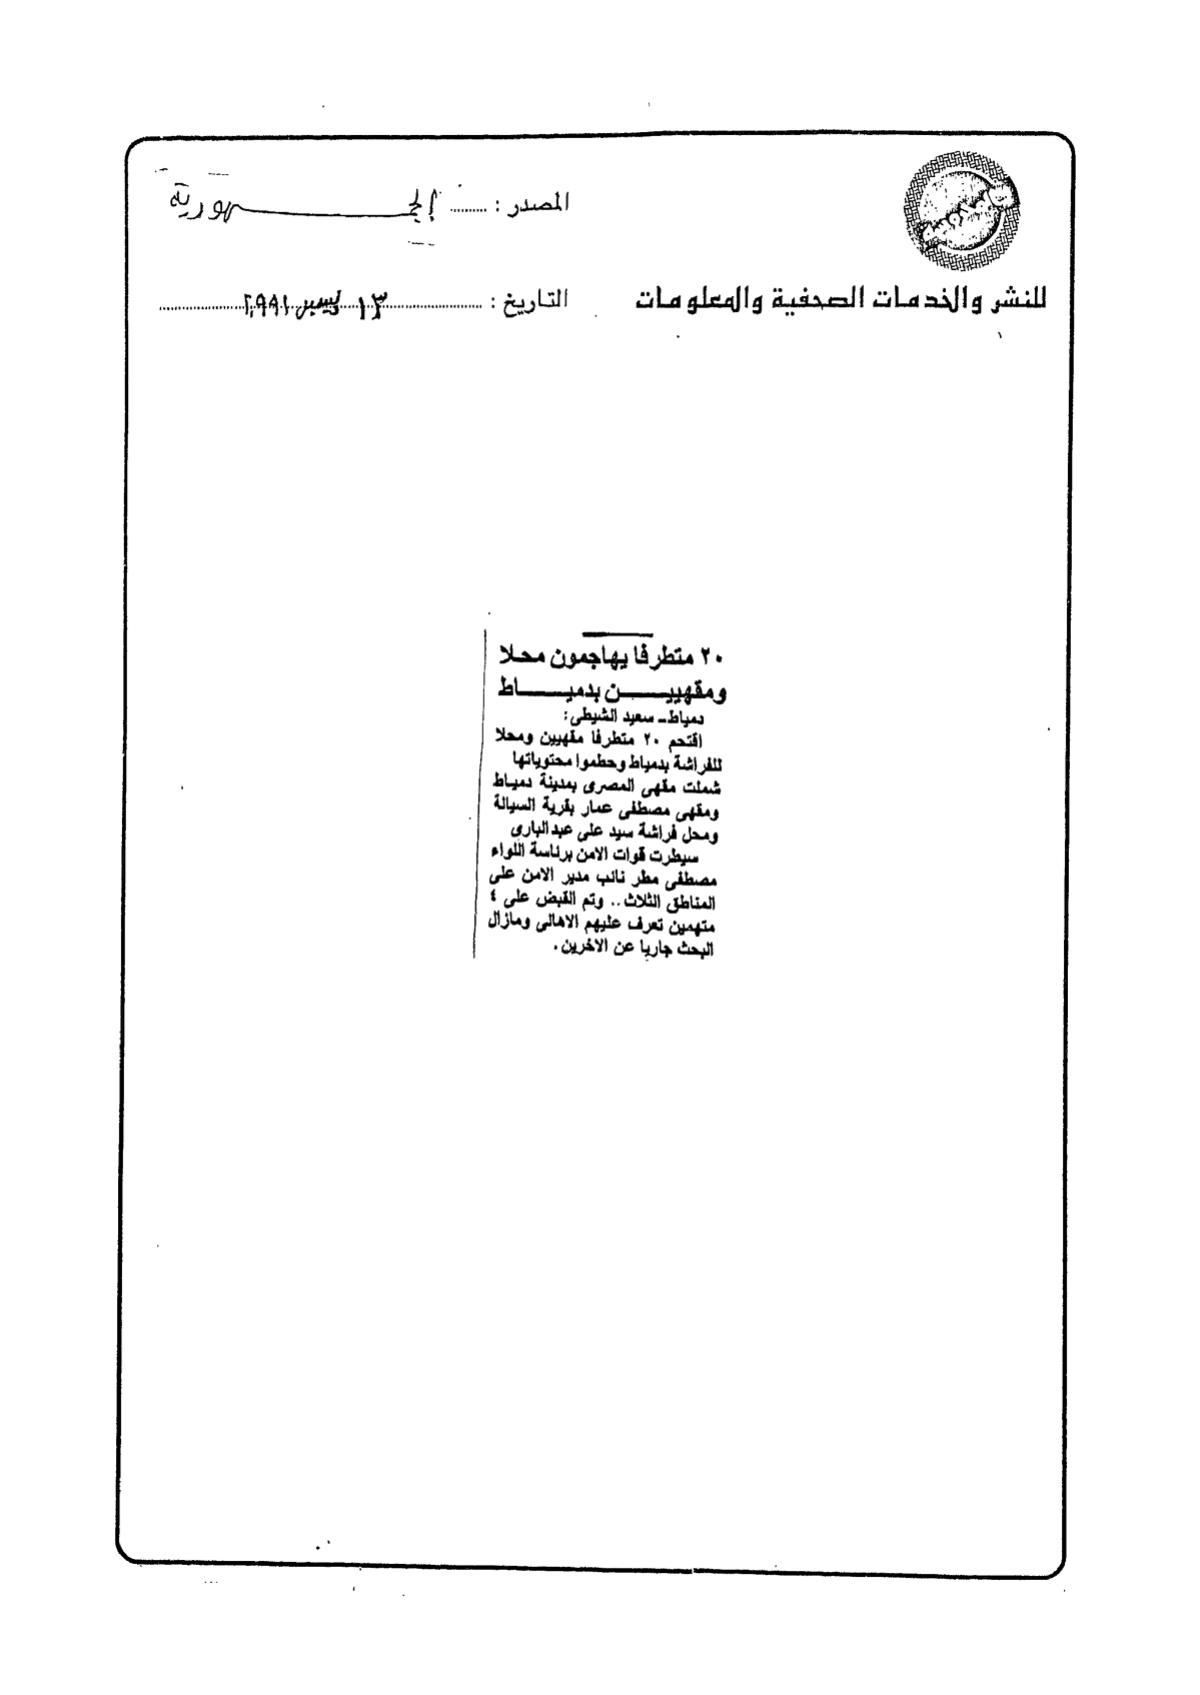 المصدر : ........ الجمهورية
للنشر والخدمات الصحفية والمعلومات
التاريخ : ١٣ ديسمبر
٢٠ متطرفا يهاجمون محلا
ومقهيين بدمياط
دمياط ـ سعيد الشيطى :
اقتحم ٢٠ متطرفا مقهيين ومحلا
للفراشة بدمياط وحطموا محتوياتها
شملت مقهى المصرى بمدينة دمياط
ومقهى مصطفى عمار بقرية السيالة
ومحل فراشة سيد على عبد البارى
سيطرت قوات الامن برئاسة اللواء
مصطفى مطر نائب مدير الامن على
المناطق الثلاث .. وتم القبض على ٤
متهمين تعرف عليهم الاهالى ومازال
البحث جاريا عن الاخرين .